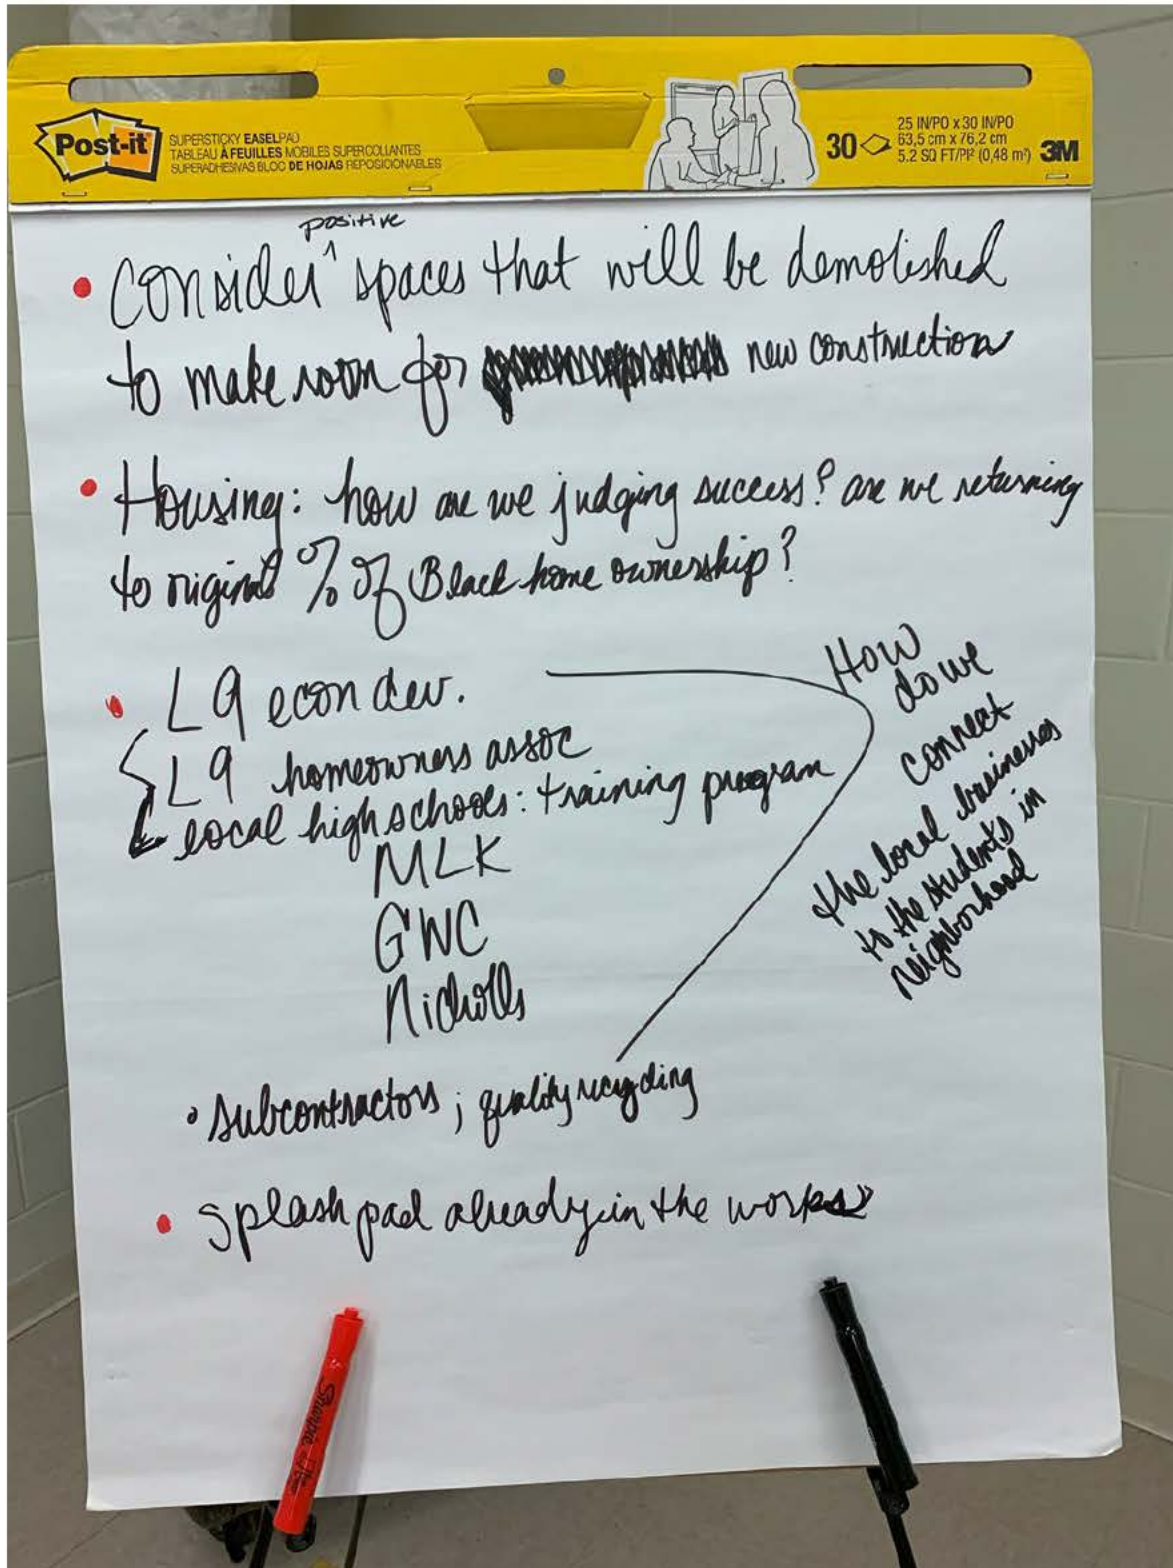 Post-it
SUPERSTICKY EASEL PAD
TABLEAU À FEUILLES MOBILES SUPERCOLLANTES
SUPERADHESIVAS BLOC DE HOJAS REPOSICIONABLES
30
25 IN/PO x 30 IN/PO
63,5 cm x 76,2 cm
5.2 SQ FT/PI² (0,48 m²)
3M
positive
• Consider ^ spaces that will be demolished
to make room for new construction
• Housing: how are we judging success? are we returning
to original % of Black home ownership?
• L9 econ dev.
L9 homeowners assoc
local high schools: training program
MLK
GWC
Nicholls
How
do we
connect
the local businesses
to the students in
neighborhood
• subcontractors; quality recycling
• splash pad already in the works
Sharpie